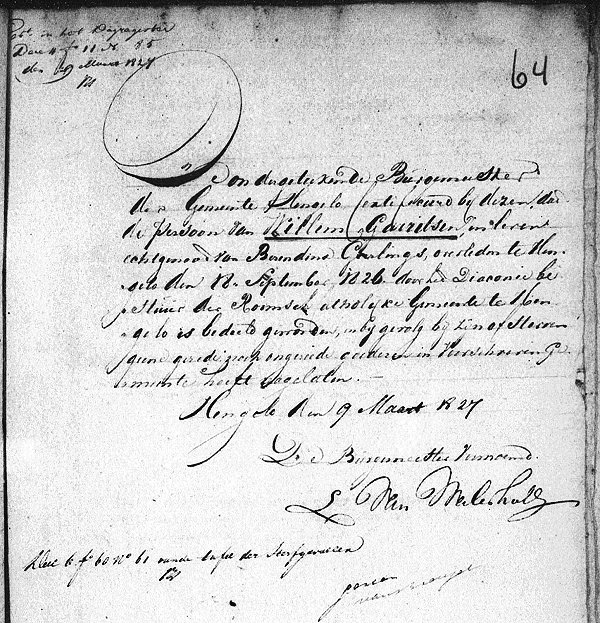 in het Dagregister
Deel 4 fo 11 N 55
den 19 Maart 1827
64
De ondergeteekende Burgemeester
der Gemeente Hengelo certificeerd by dezen, dat
de persoon van Willem Gerritsen, in leven
echtgenoot van Berendina Gerlings, overleden te Hen-
gelo den 18n September, 1826. door het Diaconie be
stuur der Roomsch Catholijke Gemeente te Hen
gelo is bedeeld geworden, en bij gevolg bij zijn afsterven
geene gereede noch ongereede goederen in Gemelde Ge-
meente heeft nagelaten. —
Hengelo den 9 Maart 1827
De Burgemeester Voornoemd.
L. Van
Deel 6 fo 60 no 61 van de tafel der Sterfgevallen